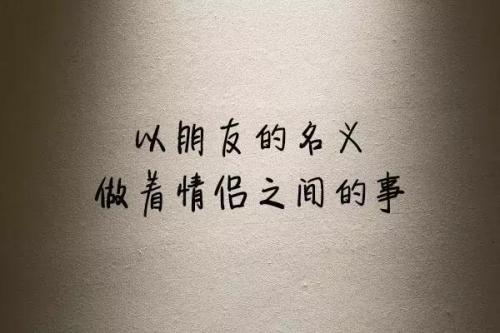 以朋友的名义
做着情侣之间的事